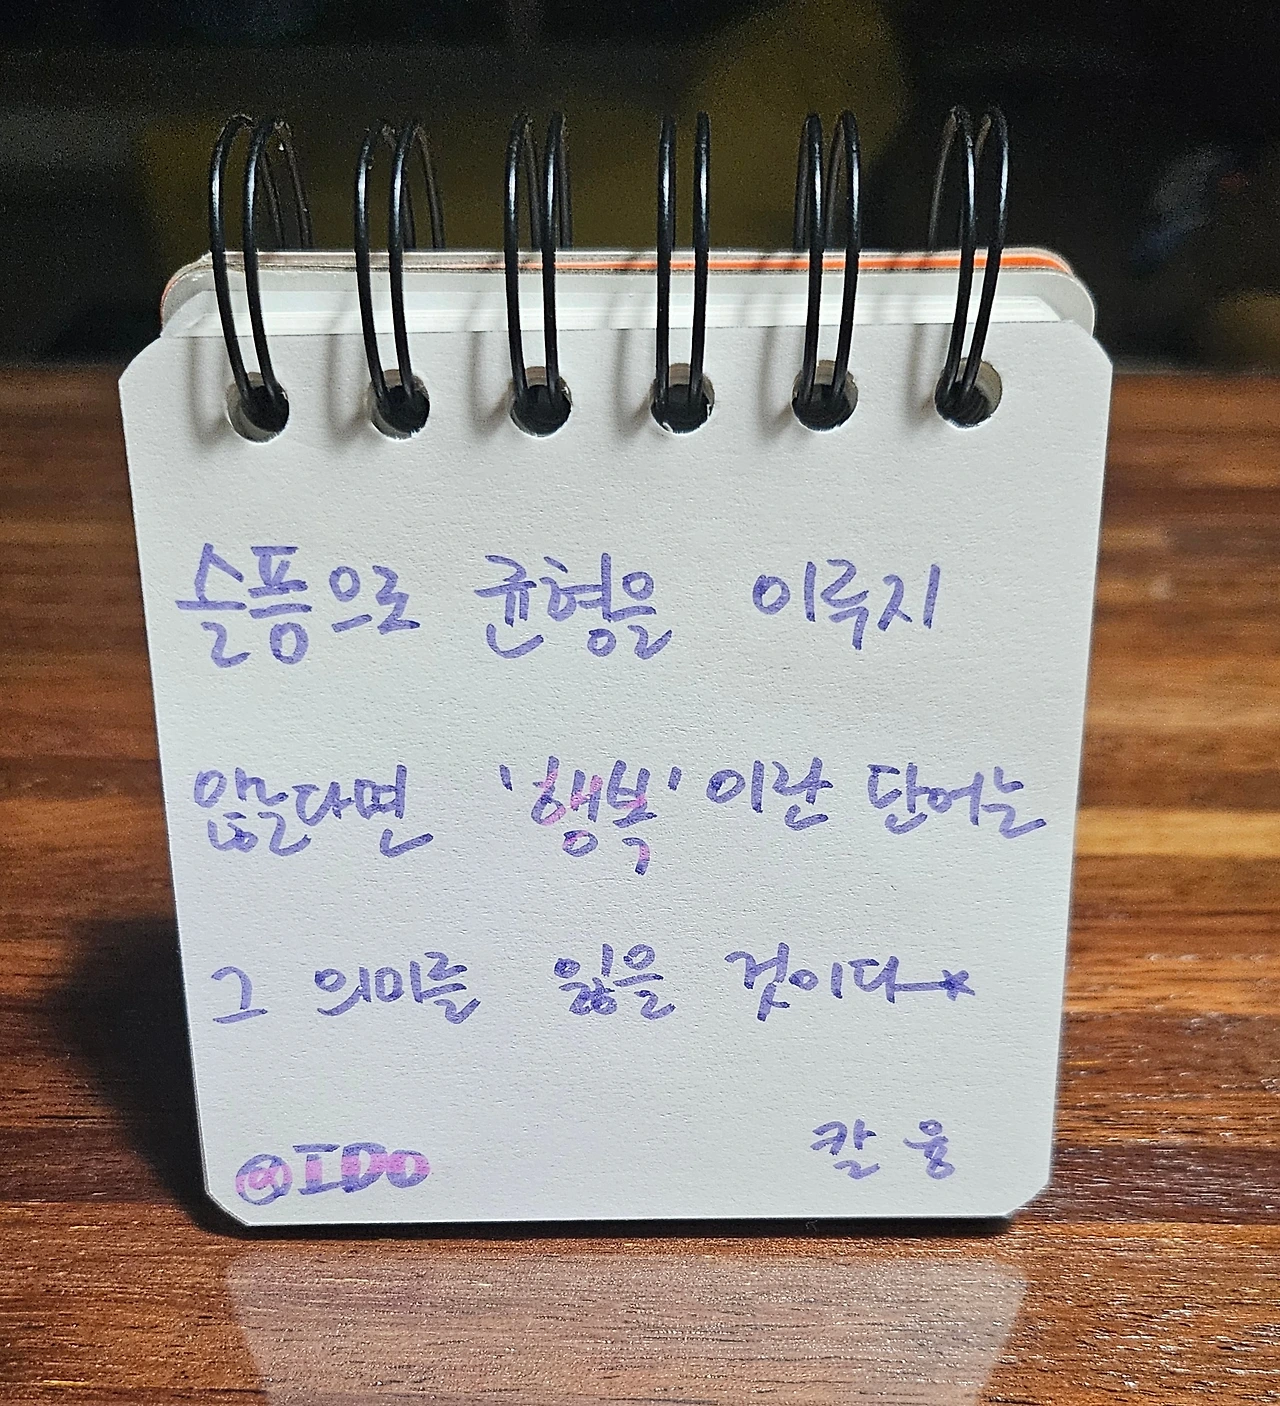 슬픔으로 균형을 이루지
않는다면 '행복' 이란 단어는
그 의미를 잃을 것이다
@IDO 칼 융